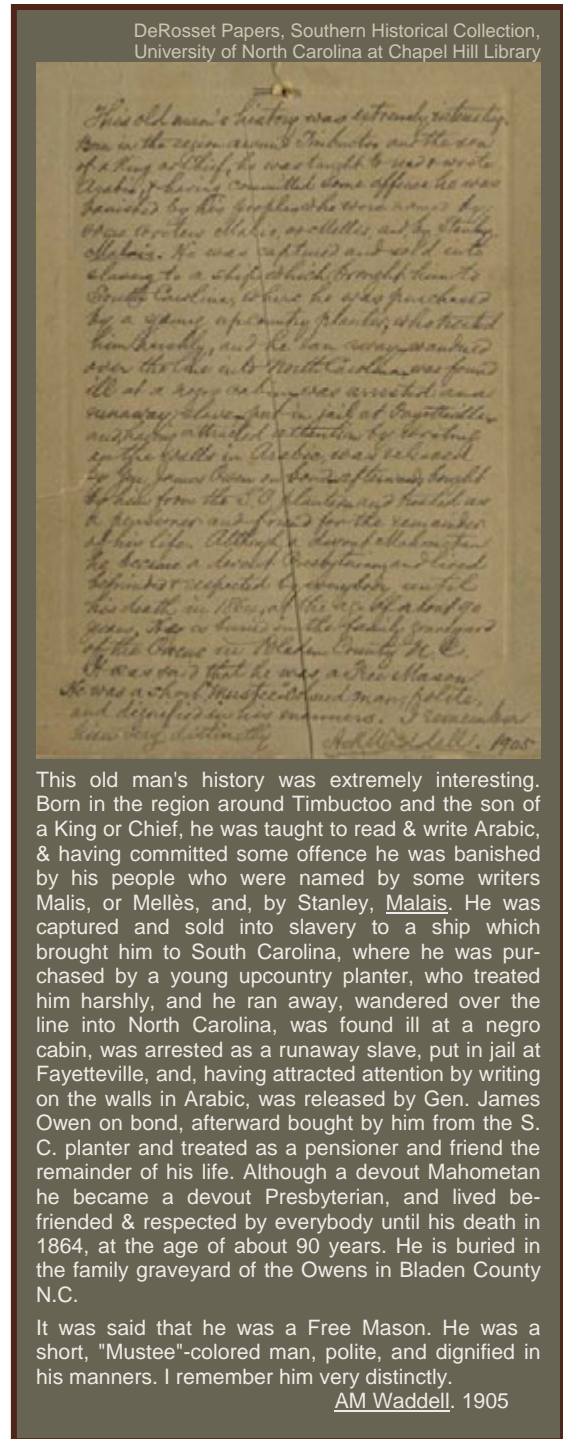 DeRosset Papers, Southern Historical Collection,
University of North Carolina at Chapel Hill Library
This old man's history was extremely interesting.
Born in the region around Timbuctoo and the son
of a King or Chief, he was taught to read & write
Arabic, & having committed some offence he was
banished by his people who were named by
some writers Malis, or Mellès, and by Stanley
Malais. He was captured and sold into
slavery to a ship which brought him to
South Carolina, where he was purchased
by a young upcountry planter, who treated
him harshly, and he ran away, wandered
over the line into North Carolina, was found
ill at a negro cabin, was arrested as a
runaway slave, put in jail at Fayetteville
and, having attracted attention by writing
on the walls in Arabic, was released
by Gen. James Owen on bond, afterward bought
by him from the S.C. planter and treated as
a pensioner and friend for the remainder
of his life. Although a devout Mahometan
he became a devout Presbyterian, and lived
befriended & respected by everybody until
his death in 1864, at the age of about 90
years. He is buried in the family graveyard
of the Owens in Bladen County N.C.
It was said that he was a Free Mason.
He was a short "Mustee" colored man, polite,
and dignified in his manners. I remember
him very distinctly AM Waddell. 1905
This old man's history was extremely interesting.
Born in the region around Timbuctoo and the son of
a King or Chief, he was taught to read & write Arabic,
& having committed some offence he was banished
by his people who were named by some writers
Malis, or Mellès, and, by Stanley, Malais. He was
captured and sold into slavery to a ship which
brought him to South Carolina, where he was pur-
chased by a young upcountry planter, who treated
him harshly, and he ran away, wandered over the
line into North Carolina, was found ill at a negro
cabin, was arrested as a runaway slave, put in jail at
Fayetteville, and, having attracted attention by writing
on the walls in Arabic, was released by Gen. James
Owen on bond, afterward bought by him from the S.
C. planter and treated as a pensioner and friend the
remainder of his life. Although a devout Mahometan
he became a devout Presbyterian, and lived be-
friended & respected by everybody until his death in
1864, at the age of about 90 years. He is buried in
the family graveyard of the Owens in Bladen County
N.C.
It was said that he was a Free Mason. He was a
short, "Mustee"-colored man, polite, and dignified in
his manners. I remember him very distinctly.
AM Waddell. 1905